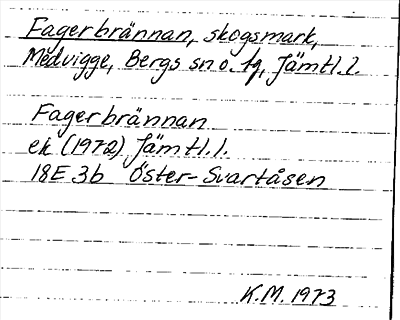 Fagerbrännan, skogsmark,
Medvigge, Bergs sn o. tg, Jämtl.l.
Fagerbrännan
ek (1972) Jämtl.l.
18E 3b Öster-Svartåsen
K.M. 1973